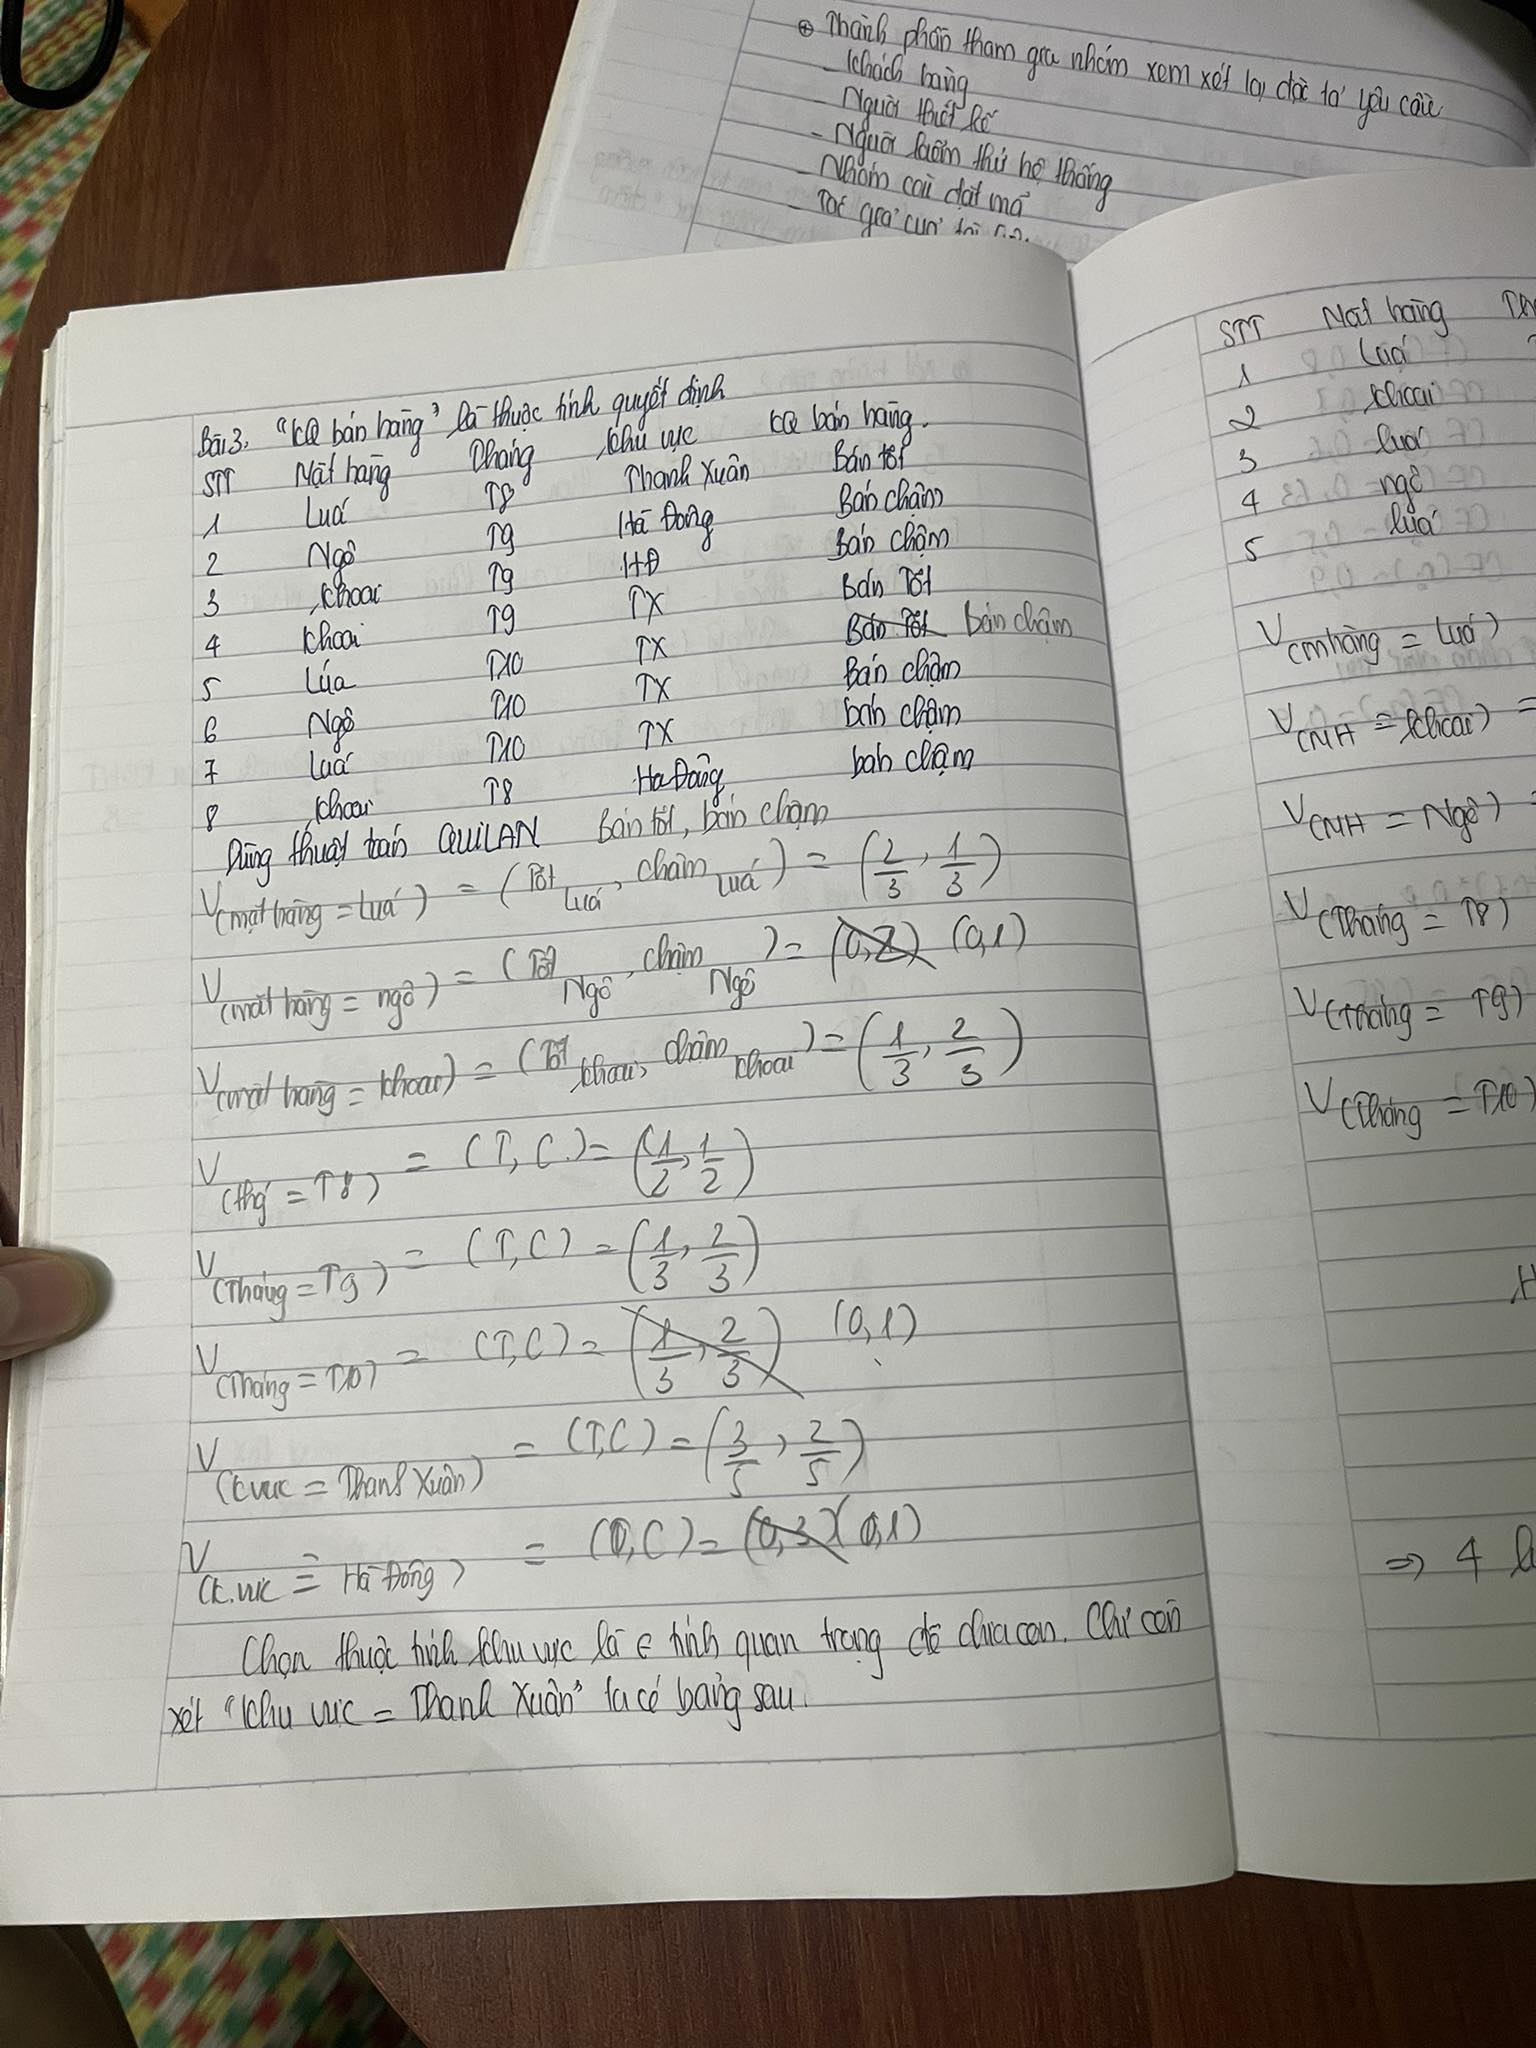 ⊕ Thành phần tham gia nhóm xem xét lại đặc tả yêu cầu
- Khách hàng
- Người thiết kế
- Người kiểm thử hệ thống
- Nhóm cài đặt mã
- Tác giả của tài
Bài 3. "KQ bán hàng" là thuộc tính quyết định
STT Mặt hàng Tháng Khu vực KQ bán hàng.
1 Luá T8 Thanh Xuân Bán tốt
2 Ngô T9 Hà Đông Bán chậm
3 khoai T9 HĐ Bán chậm
4 khoai T9 TX Bán Tốt
5 Lúa T10 TX Bán Tốt Bán chậm
6 Ngô T10 TX Bán chậm
7 Luá T10 TX bán chậm
8 khoai T8 Hà Đông bán chậm
Dùng thuật toán QUILAN Bán tốt, bán chậm
V(mặt hàng = Luá) = (Tốt Luá, chậm Luá) = (2/3, 1/3)
V(mặt hàng = ngô) = (Tốt Ngô, chậm Ngô) = (0,2) (0,1)
V(mặt hàng = khoai) = (Tốt khoai, chậm khoai) = (1/3, 2/3)
V(thg = T8) = (T, C) = (1/2, 1/2)
V(Tháng = T9) = (T, C) = (1/3, 2/3)
V(Tháng = T10) = (T, C) = (1/3, 2/3) (0,1)
V(K vực = Thanh Xuân) = (T, C) = (3/5, 2/5)
V(K.vực = Hà Đông) = (T, C) = (0,3) (0,1)
Chọn thuộc tính khu vực là t tính quan trọng để chia con. Chỉ còn
xét "Khu vực = Thanh Xuân" ta có bảng sau.
STT Mặt hàng
1 Luá
2 khoai
3 luá
4 ngô
5 luá
V(mhàng = Luá)
V(MH = khoai) =
V(MH = Ngô) =
V(Tháng = T8)
V(Tháng = T9)
V(Tháng = T10)
⇒ 4